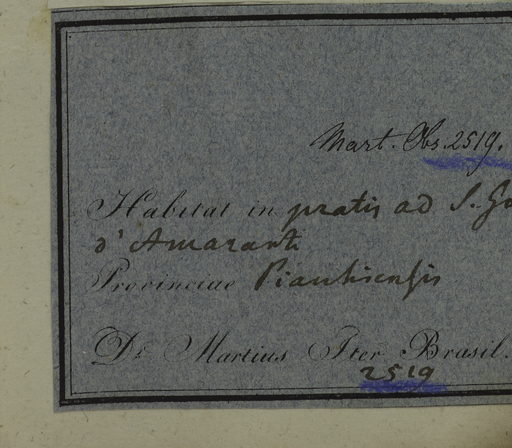 Mart. Obs. 2519.
Habitat in pratis ad S. Go
d'Amaranti
Provinciae Piauhiensis
Dr. Martius Iter Brasil.
2519